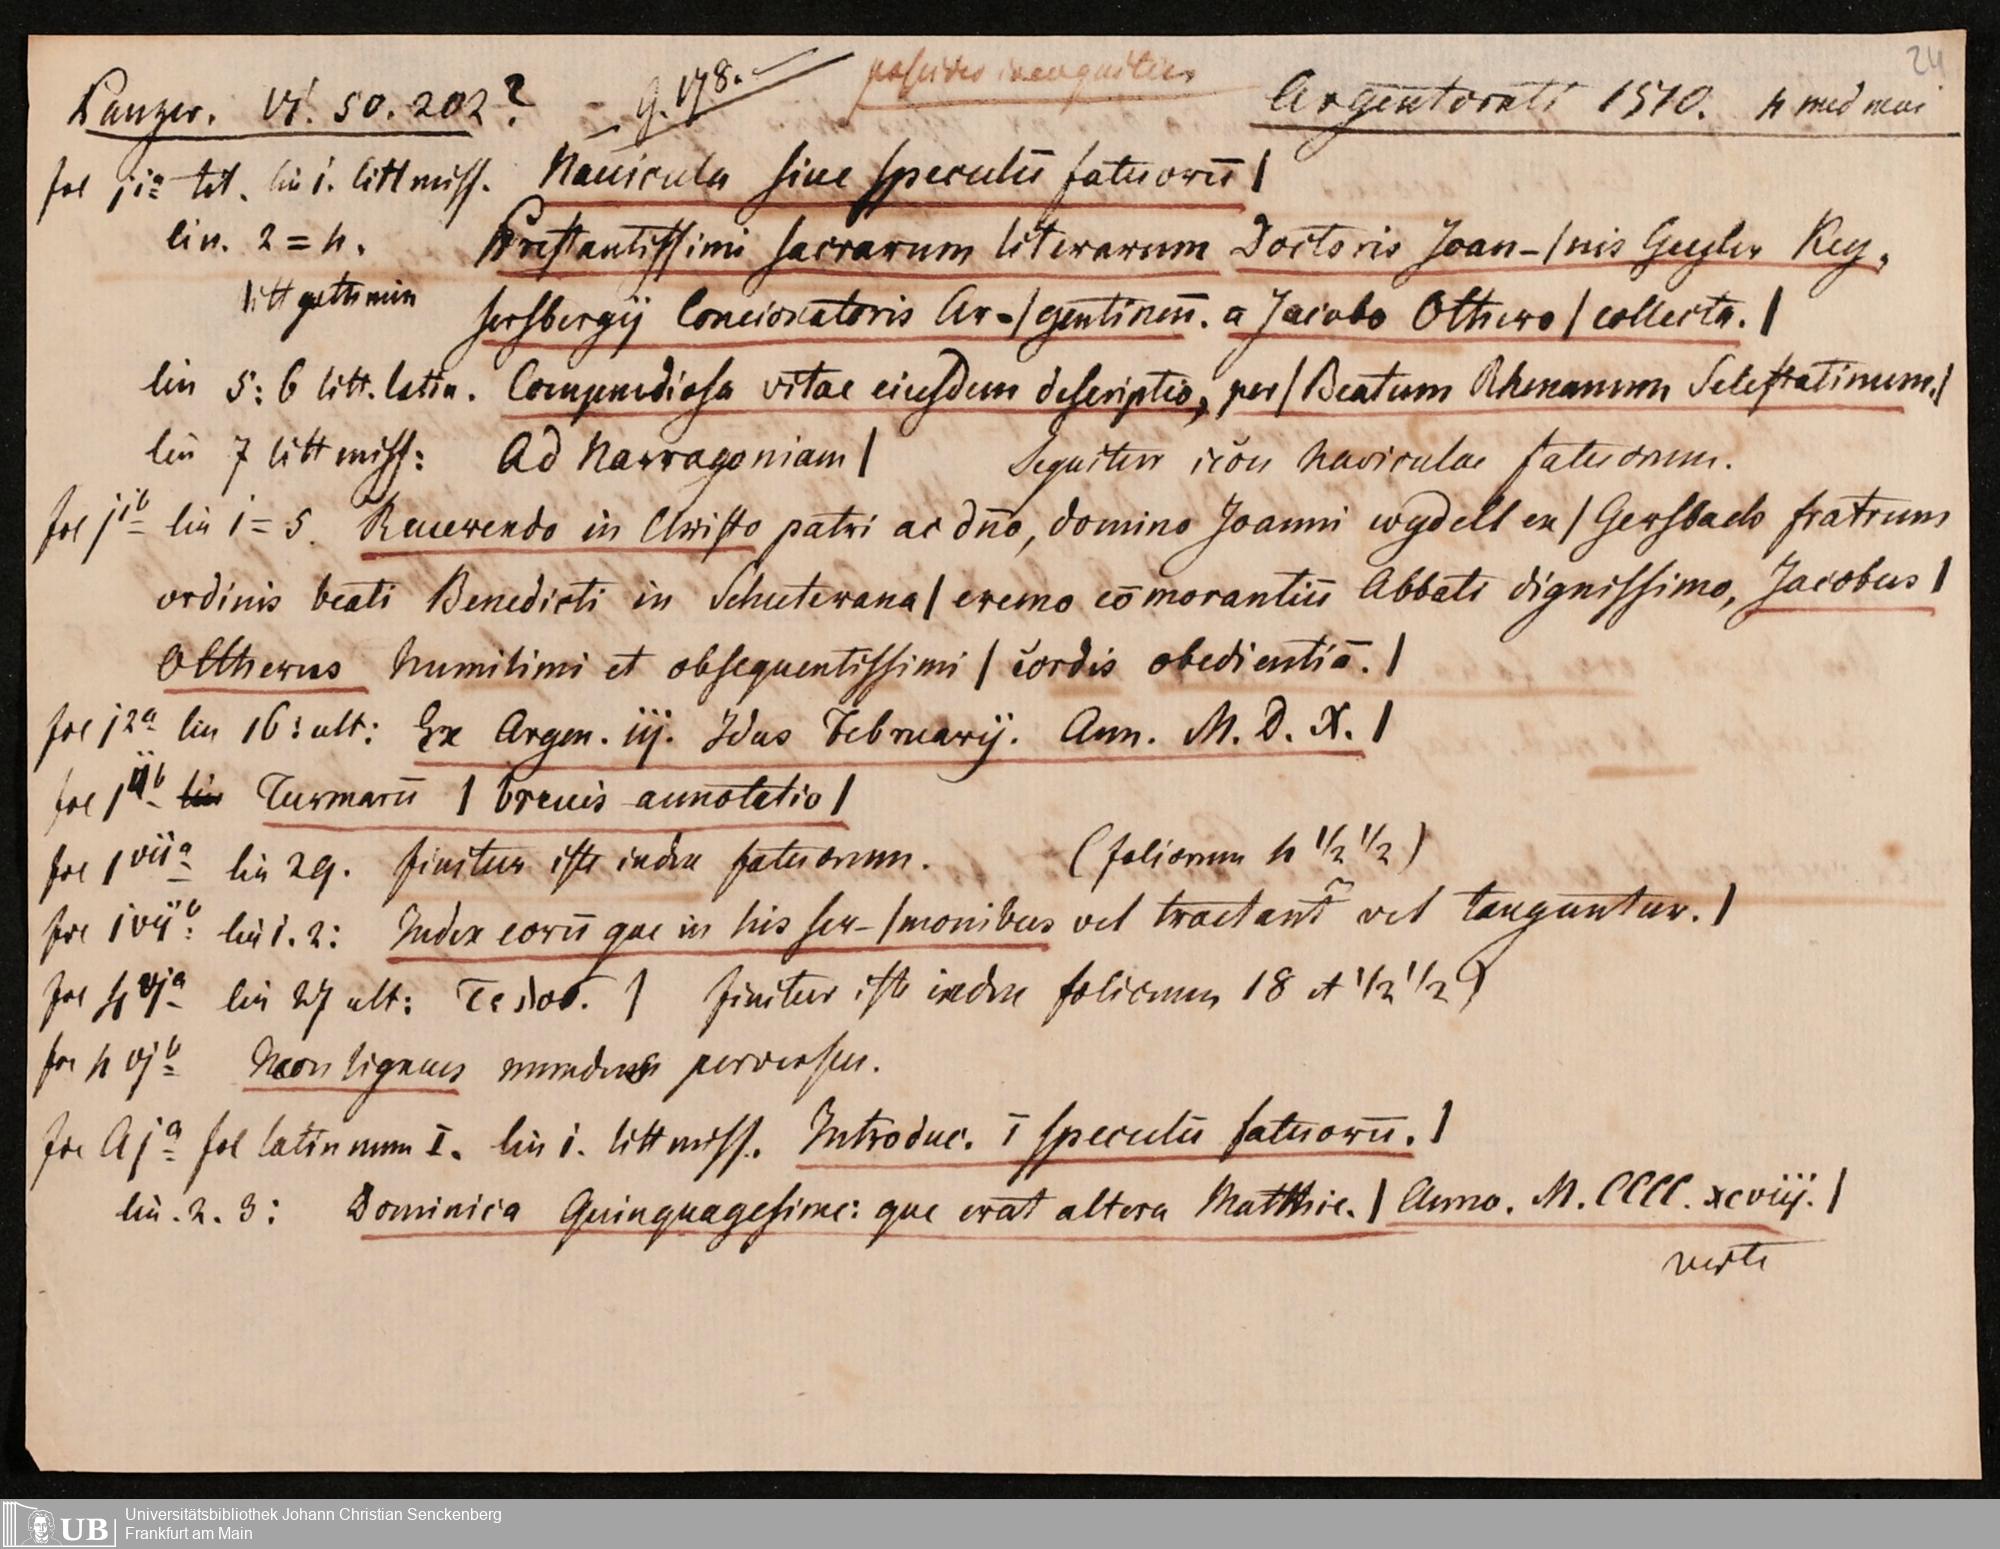 24
Panzer. VI. 50. 202? – g. 178. Argentorati 1510. 4 med mai
fol j iª tit. lin i. litt miss. Nauicula siue speculū fatuorū |
lin. 2 = 4. Prestantissimi sacrarum literarum Doctoris Joan-|nis Geyler Key,
litt goth min sersbergij Concionatoris Ar-|gentineñ. a Jacobo Othero | collecta. |
lin 5: 6 litt. latin. Compendiosa vitae eiusdem descriptio, per | Beatum Rhenanum Selestatinum. |
lin 7 litt miss: Ad Narragoniam | Sequitur icõn naviculae fatuorum.
fol j iᵇ lin i = 5. Reuerendo in Christo patri ac dño, domino Joanni wydell ex | Gersbach fratrum
ordinis beati Benedicti in Schuterana | eremo cōmorantiū Abbati dignissimo, Jacobus |
Ottherus humilimi et obsequentissimi | cordis obedientiā. |
fol j 2ª lin 16: ult: Ex Argen. iij. Idus Februarij. Ann. M. D. X. |
fol j iiᵇ Turmarū | breuis annotatio |
fol 1 viiª lin 29. finitur iste index fatuorum. (foliorum 4 1/2 1/2)
fol i vijᵇ: lin i. 2: Index eorū que in his ser-|monibus vel tractant̃ vel tanguntur. |
fol 4 vjª lin 27 ult: Τέλος. | finitur iste index foliorum 18 et 1/2 1/2)
fol 4 vjᵇ Non lignaus mundus perversus.
fol A jª fol latin num I. lin i. litt miss. Introduc. ī speculū fatuorū. |
lin. 2. 3: Dominica Quinquagesime: que erat altera Matthie. | Anno. M. CCCC. xcviij. |
verte
Universitätsbibliothek Johann Christian Senckenberg
UB Frankfurt am Main